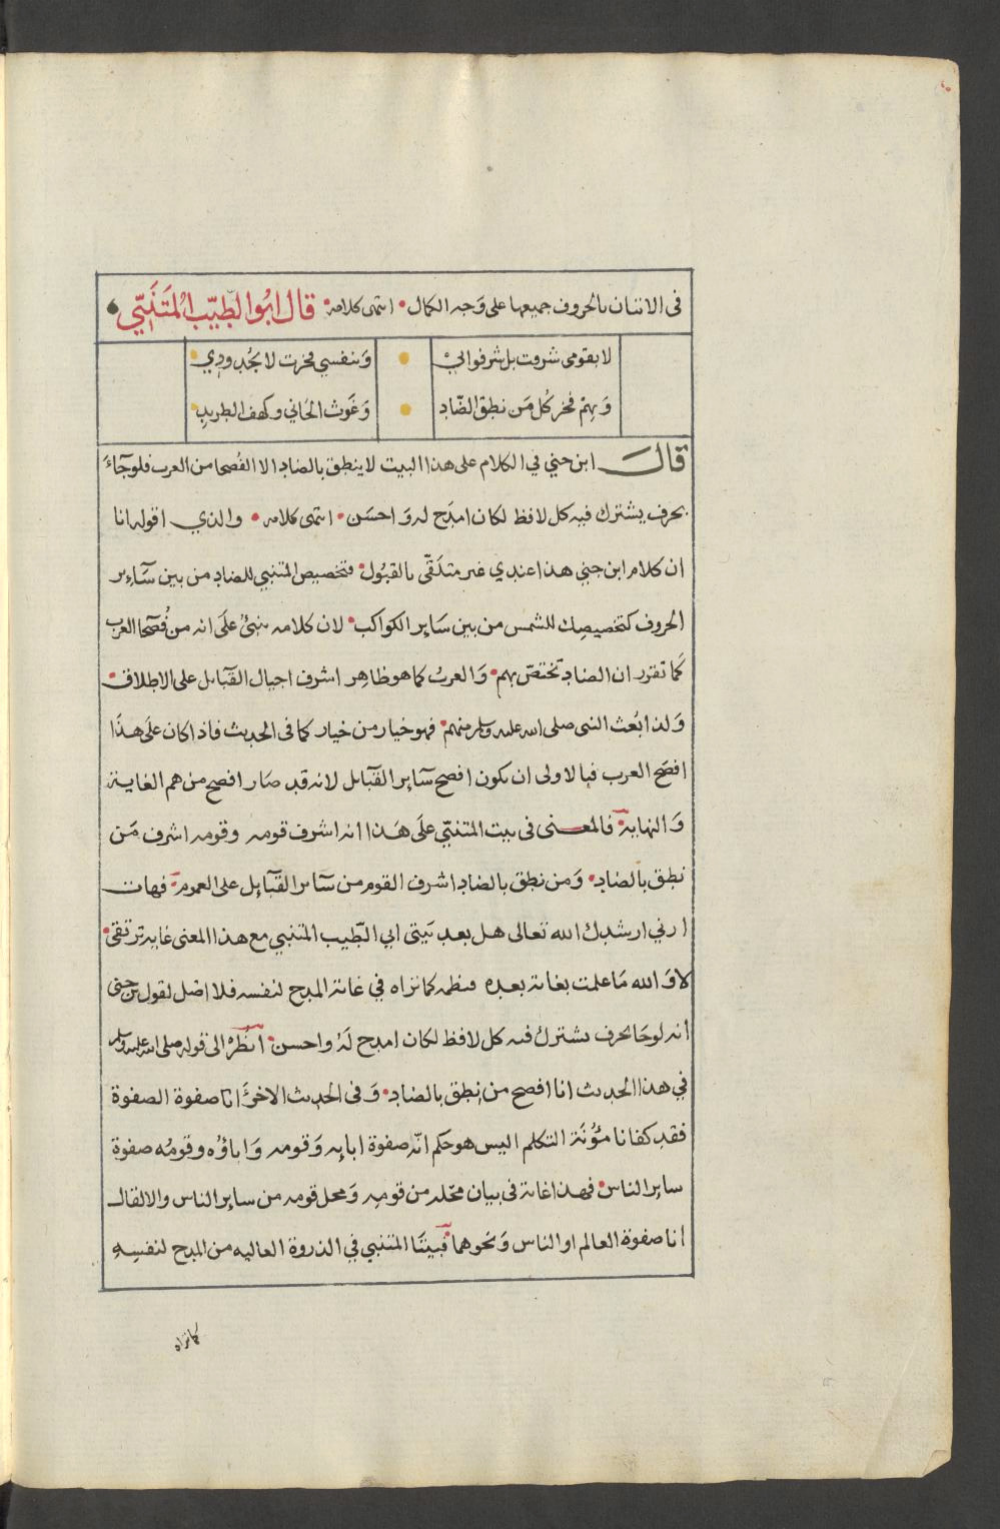 في الاتيان بالحروف جميعها على وَجه الكمال • انتهى كلامه • قال ابُوا لطّيّب المُتَنَبّي
لا بقومى شرفت بل شرفوا بيْ • وَبنفسي فخرت لا بجُدودِي
وَبِهمْ فخر كُل مَن نطق الضّاد • وَغَوث الجَاني وكهف الطريدِ
قال ابن جني في الكلام على هذا البيت لا ينطق بالضاد الا الفُصحا من العرب فلو جَآءَ
بحرف يشترك فيه كل لافظ لكان امدَح له وَاحسَن • انتهى كلامه • والذي اقوله انا
ان كلام ابن جني هذا عندي غير متلَقّى بالقبُول • فتخصيص المتنبي للضاد من بين سَآءِر
الحروف كتخصيصِك للشمس من بين سَايِر الكواكب • لان كلامه ينبئُ علَى انه من فُصَحا العرب
كَما تقرر ان الضاد تختصّ بهم • وَالعربُ كما هو ظاهِر اشرف اجيال القبَآىل على الاطلاق •
وَلذا بُعث النبى صلى الله عليه وسلم منهم • فهو خيار من خيار كما فى الحديث فاذا كان علَى هذَا
افصَح العرب فبالاولى ان يكون افصح سَآيِر القبَآىل لانه قد صَار افصح من هم الغاية
وَالنهاية • فالمعنى فى بيت المتنبّي علَى هَذا انه اشرف قومه وقومه اشرف مَن
نطق بالضاد • وَمن نطق بالضاد اشرف القوم من سَآىر القبَآيِل على العموم • فهات
ارني ارشدك الله تعالى هل بعد بَيتى ابي الطّيب المتنبي مع هذا المعنى غاية ترتقى •
لا وَالله مَا علمت بغاية بعده فنظمه كما تراه في غاية المدح لنفسه فلا اصل لقول بن جنى
انه لو جَا بحرف يشترك فيه كل لافظ لكان امدح لَهُ واحسن • انْظُرْ الى قوله صلى الله عليه وسلم
في هذا الحديث انا افصح من نطق بالضاد • وَفى الحديث الاخرَ انا صفوة الصفوة
فقد كفانا مَئُونَة التكلم اليس هو حكم انّه صفوة ابايه وَقومه وَاباؤُه وقومُه صفوة
سايِر الناس • فهذا غاية فى بيان محَله من قومِه وَمحل قومِه من سايِر الناس والا لقال
انا صفوة العالم او الناس وَنحوهما • فبيتَا المتنبي في الذروة العاليه من المدح لنفسِهِ
كما تراه